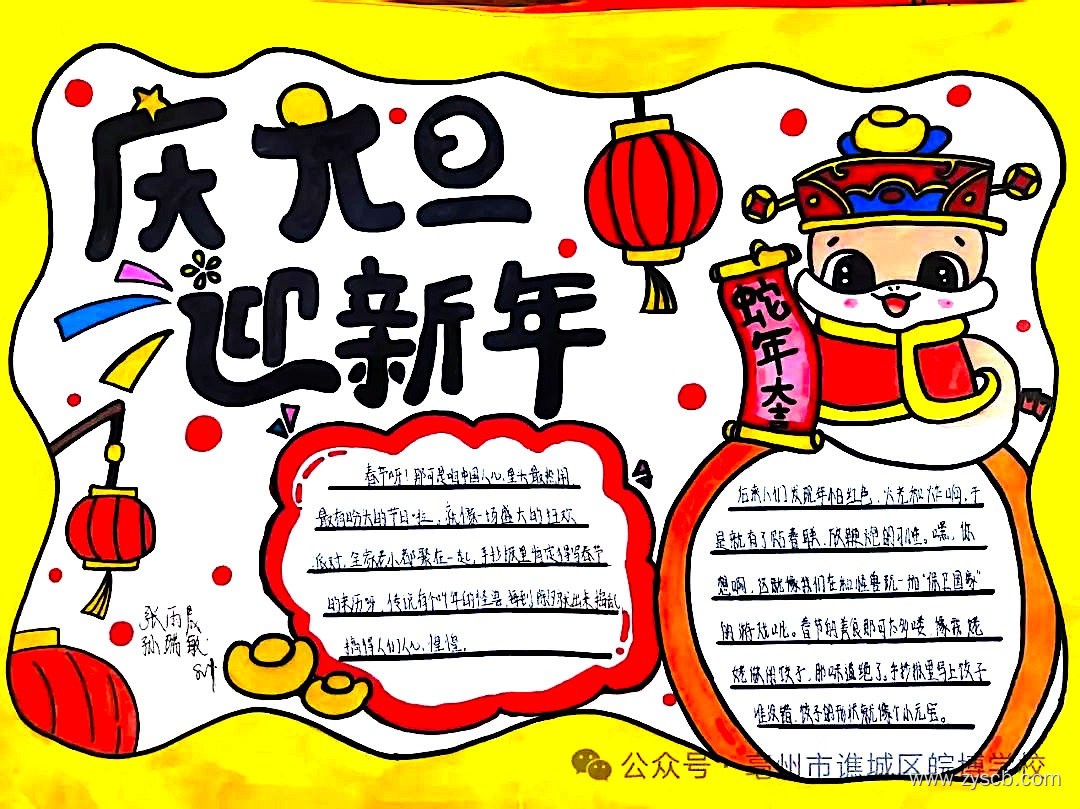 庆元旦
迎新年
蛇年大吉
春节呀！那可是咱中国人心里头最热闹
最有盼头的节日啦，就像一场盛大的狂欢
派对，全家老小都聚在一起，手抄报里肯定得写春节
的来历呀，传说有个叫年的怪兽，每到除夕就出来捣乱
搞得人们人心惶惶。
后来人们发现年怕红色、火光和炸响，于
是就有了贴春联、放鞭炮的习惯。嘿，你
想啊，这就像我们在和怪兽玩一场“保卫国家”
的游戏呢。春节的美食那可太多喽，像我姥
姥做的饺子，那味道绝了。手抄报里写上饺子
准没错，饺子的形状就像个小元宝。
张雨辰
孙瑞敏
公众号·亳州市谯城区皖博学校
www.zyscb.com